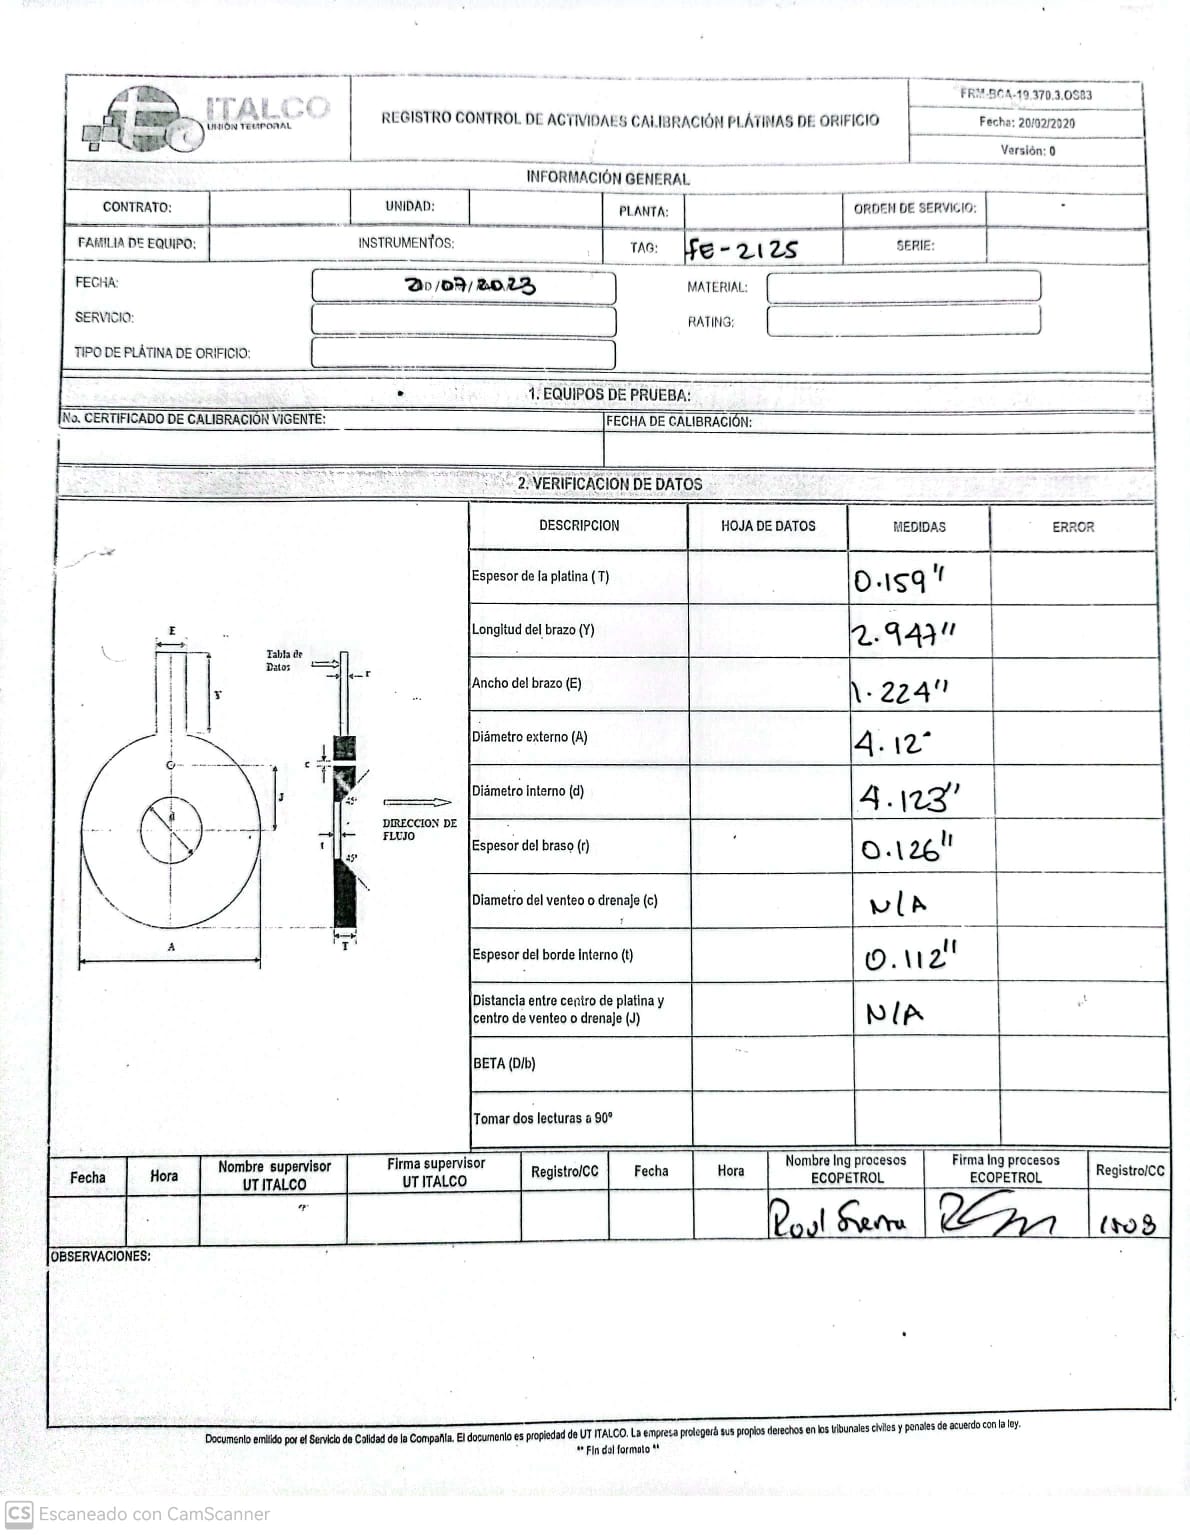 ITALCO
UNIÓN TEMPORAL
REGISTRO CONTROL DE ACTIVIDAES CALIBRACIÓN PLÁTINAS DE ORIFICIO
FRM-BCA-19.370.3.OS83
Fecha: 20/02/2020
Versión: 0
INFORMACIÓN GENERAL
CONTRATO: UNIDAD: PLANTA: ORDEN DE SERVICIO:
FAMILIA DE EQUIPO: INSTRUMENTOS: TAG: FE-2125 SERIE:
FECHA: 20/07/2023 MATERIAL:
SERVICIO: RATING:
TIPO DE PLÁTINA DE ORIFICIO:
1. EQUIPOS DE PRUEBA:
No. CERTIFICADO DE CALIBRACIÓN VIGENTE: FECHA DE CALIBRACIÓN:
2. VERIFICACION DE DATOS
DESCRIPCION HOJA DE DATOS MEDIDAS ERROR
Espesor de la platina (T) 0.159"
Longitud del brazo (Y) 2.947"
Ancho del brazo (E) 1.224"
Diámetro externo (A) 4.12"
Diámetro interno (d) 4.123"
Espesor del braso (r) 0.126"
Diametro del venteo o drenaje (c) N/A
Espesor del borde Interno (t) 0.112"
Distancia entre centro de platina y
centro de venteo o drenaje (J) N/A
BETA (D/b)
Tomar dos lecturas a 90º
E
Tabla de
Datos
r
Y
c
J
45°
d
DIRECCION DE
FLUJO
t
45°
A
T
Fecha Hora Nombre supervisor
UT ITALCO Firma supervisor
UT ITALCO Registro/CC Fecha Hora Nombre Ing procesos
ECOPETROL Firma Ing procesos
ECOPETROL Registro/CC
Raul Sierra
OBSERVACIONES:
Documento emitido por el Servicio de Calidad de la Compañía. El documento es propiedad de UT ITALCO. La empresa protegerá sus propios derechos en los tribunales civiles y penales de acuerdo con la ley.
** Fin del formato **
CS Escaneado con CamScanner